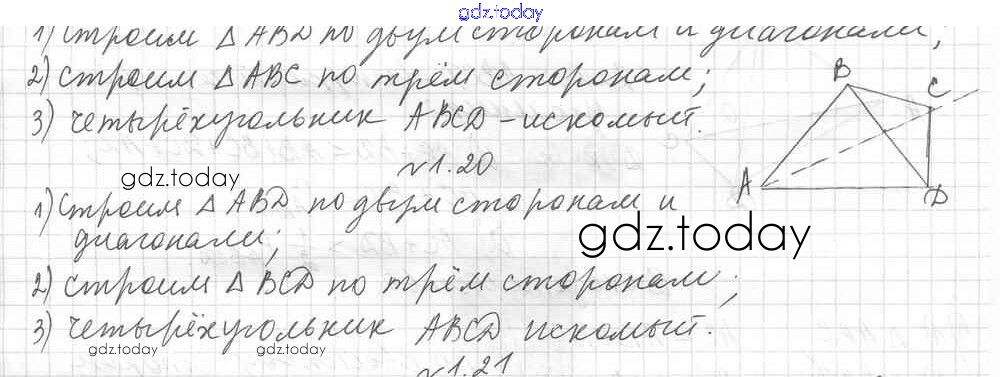 gdz.today
1) Строим △ ABD по двум сторонам и диагонали;
2) строим △ ABC по трём сторонам;
3) четырёхугольник ABCD - искомый.
№1.20
gdz.today
1) Строим △ ABD по двум сторонам и
диагонали;
gdz.today
2) строим △ BCD по трём сторонам;
3) четырёхугольник ABCD искомый.
gdz.today
gdz.today
№1.21
B
C
A
D